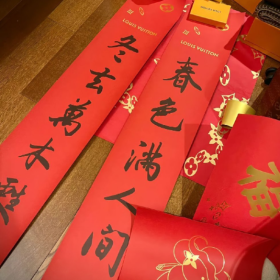 LOUIS VUITTON
春色满人间
LOUIS VUITTON
冬去萬木
福